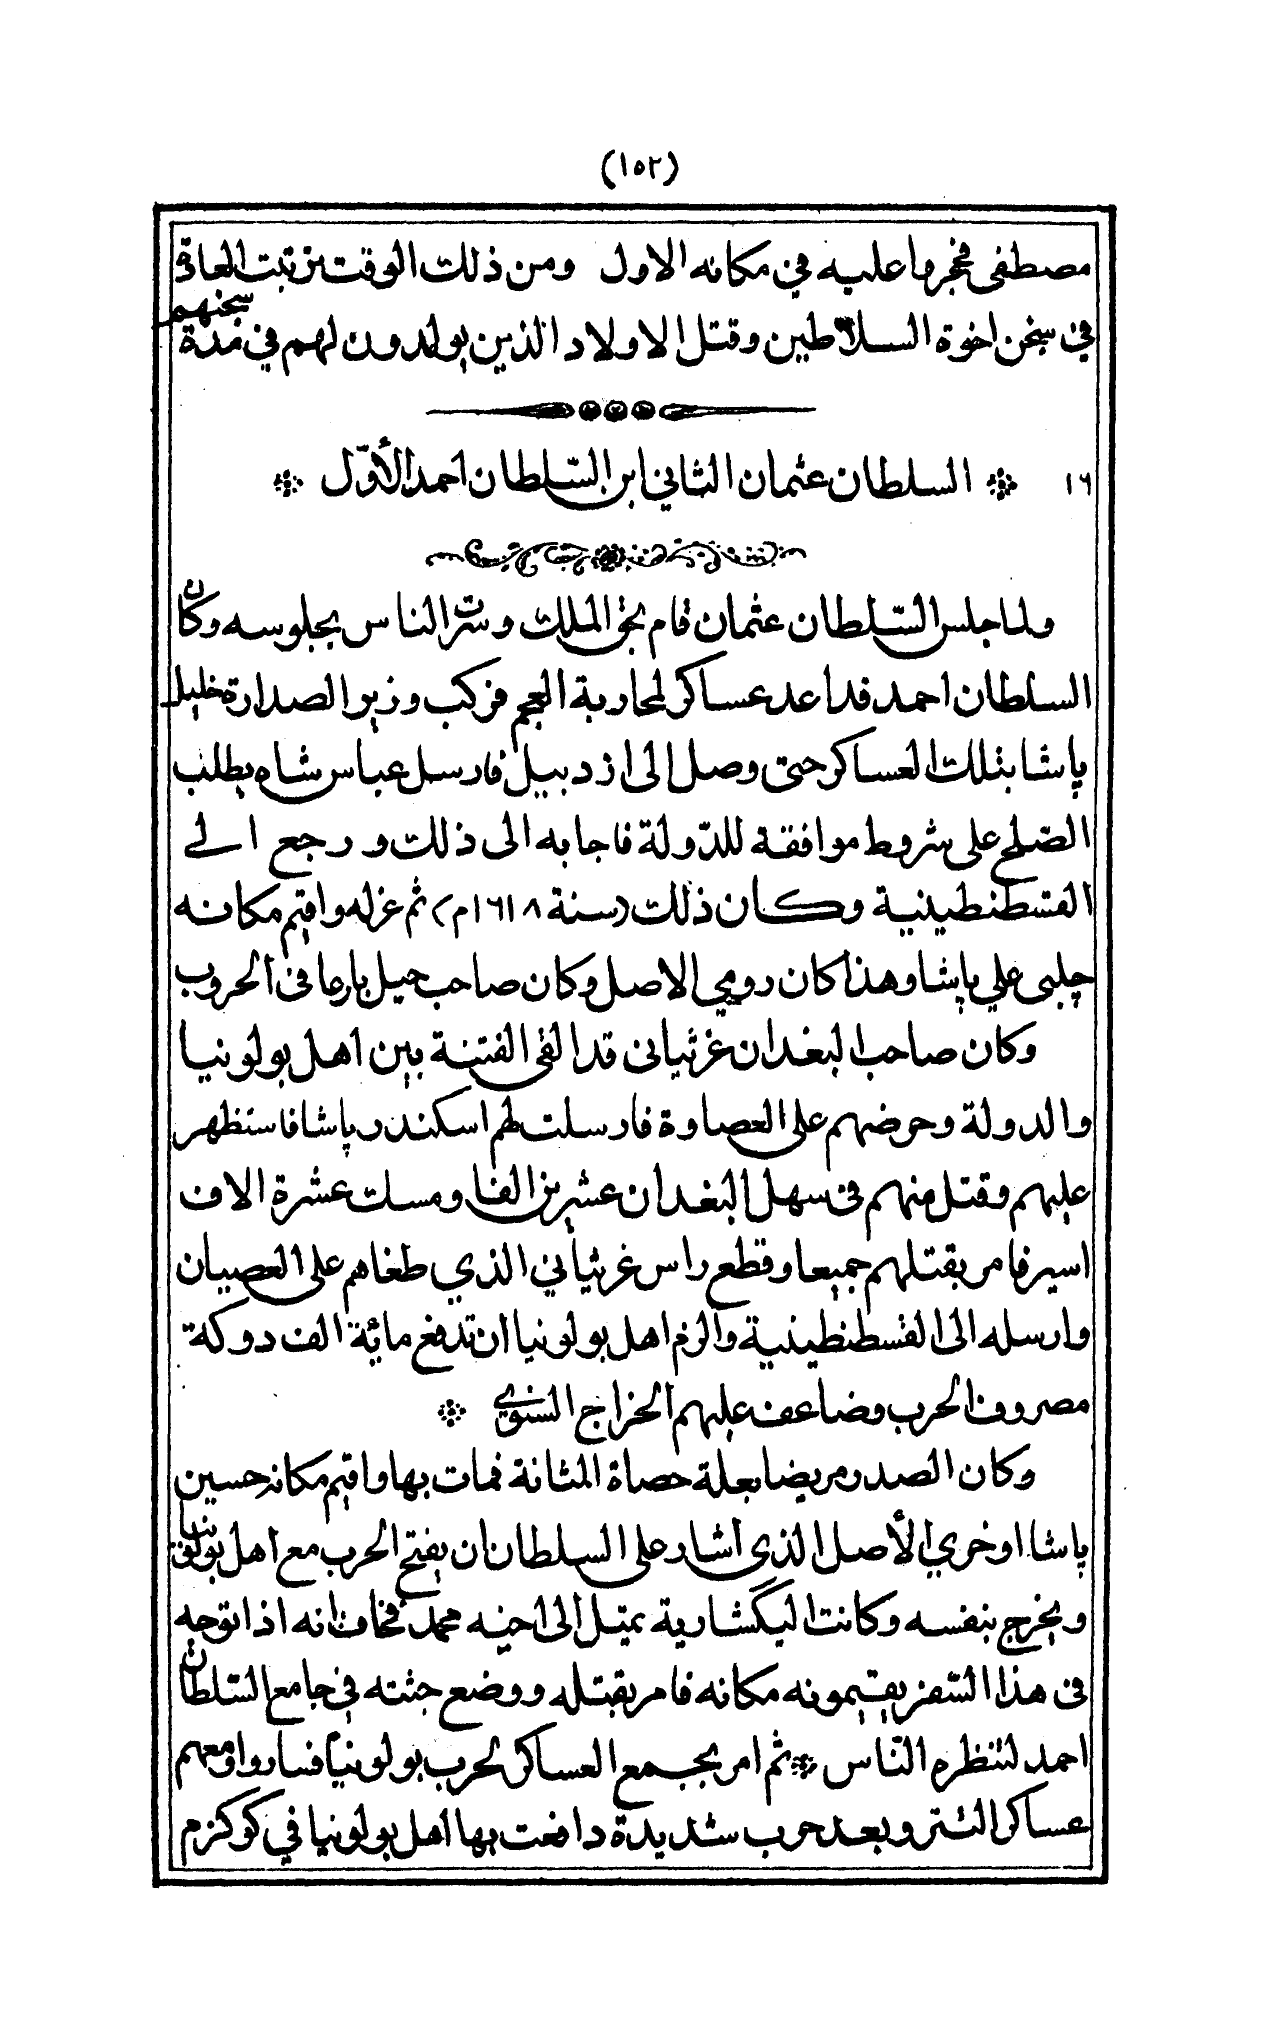 (١٥٢)
مصطفى فحجروا عليه في مكانه الاول ومن ذلك الوقت ترتبت العادة
في سجن اخوة السلاطين وقتل الاولاد الذين يولدون لهم في مدة سجنهم
١٦ السلطان عثمان الثاني ابن السّلطان احمد الأوّل
ولما جلس السّلطان عثمان قام بحق الملك وسّرت الناس بجلوسه وكان
السلطان احمد قد اعد عساكر لمحاربة العجم فركب وزير الصدارة خليل
پاشا بتلك العساكر حتى وصل الى ازدبيل فارسل عباس شاه يطلب
الصّلح على شروط موافقة للدّولة فاجابه الى ذلك ورجع الى
القسطنطينية وكان ذلك (سنة ١٦١٨م) ثم عزله واقيم مكانه
چلبى علي پاشا وهذا كان رومي الاصل وكان صاحب حيل بارعا فى الحروب
وكان صاحب البغدان غرثيانى قد القى الفتنة بين اهل بولونيا
والدولة وحوضهم على العصاوة فارسلت لهم اسكندر پاشا فاستظهر
عليهم وقتل منهم فى سهل البغدان عشرين الفا ومسك عشرة الاف
اسير فامر بقتلهم جميعا وقطع راس غرثياني الذي طغاهم على العصيان
وارسله الى القسطنطينية والزم اهل بولونيا ان تدفع مائة الف دوكة
مصروف الحرب وضاعف عليهم الخراج السنوي
وكان الصدر مريضا بعلة حصاة المثانة فمات بها واقيم مكانه حسين
پاشا اوخري الأصل الذى اشار على السلطان ان يفتح الحرب مع اهل بولونيا
ويخرج بنفسه وكانت اليكشارية تميل الى اخيه محمد فخاف انه اذا توجه
فى هذا السّفر يقيمونه مكانه فامر بقتله ووضع جثته في جامع السّلطان
احمد لتنظره النّاس ثم امر بجمع العساكر لحرب بولونيا فساروا ومعهم
عساكر التتر وبعد حرب شديدة دافعت بها اهل بولونيا في كوكزم